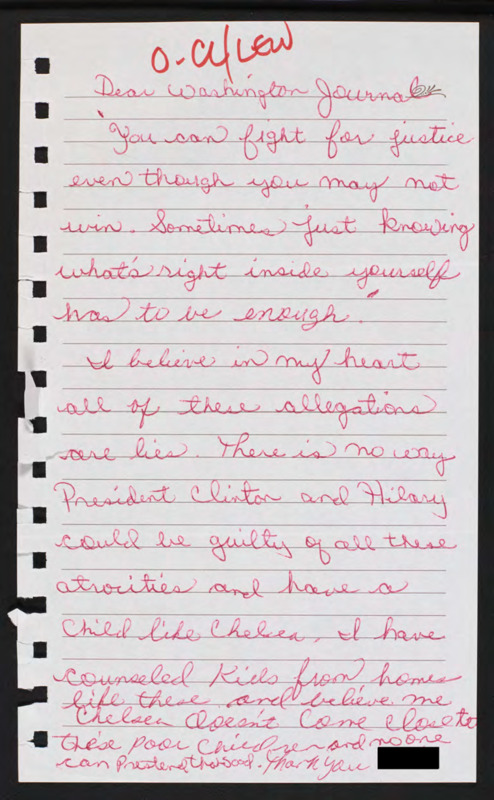 O-CL/LEW
Dear Washington Journal
"You can fight for justice
even though you may not
win. Sometimes just knowing
what's right inside yourself
has to be enough."
I believe in my heart
all of these allegations
are lies. There is no way
President Clinton and Hilary
could be guilty of all these
atrocities and have a
Child like Chelsea. I have
counseled Kids from homes
like these and believe me
Chelsea doesn't come close to
these poor children and no one
can Pretend that good. Thank You